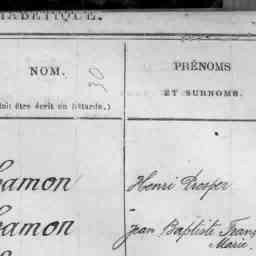 ALPHABÉTIQUE.
NOM.
30
(doit être écrit en bâtarde.)
PRÉNOMS
ET SURNOMS.
hamon
Henri Prosper
hamon
Jean Baptiste Franç
Marie